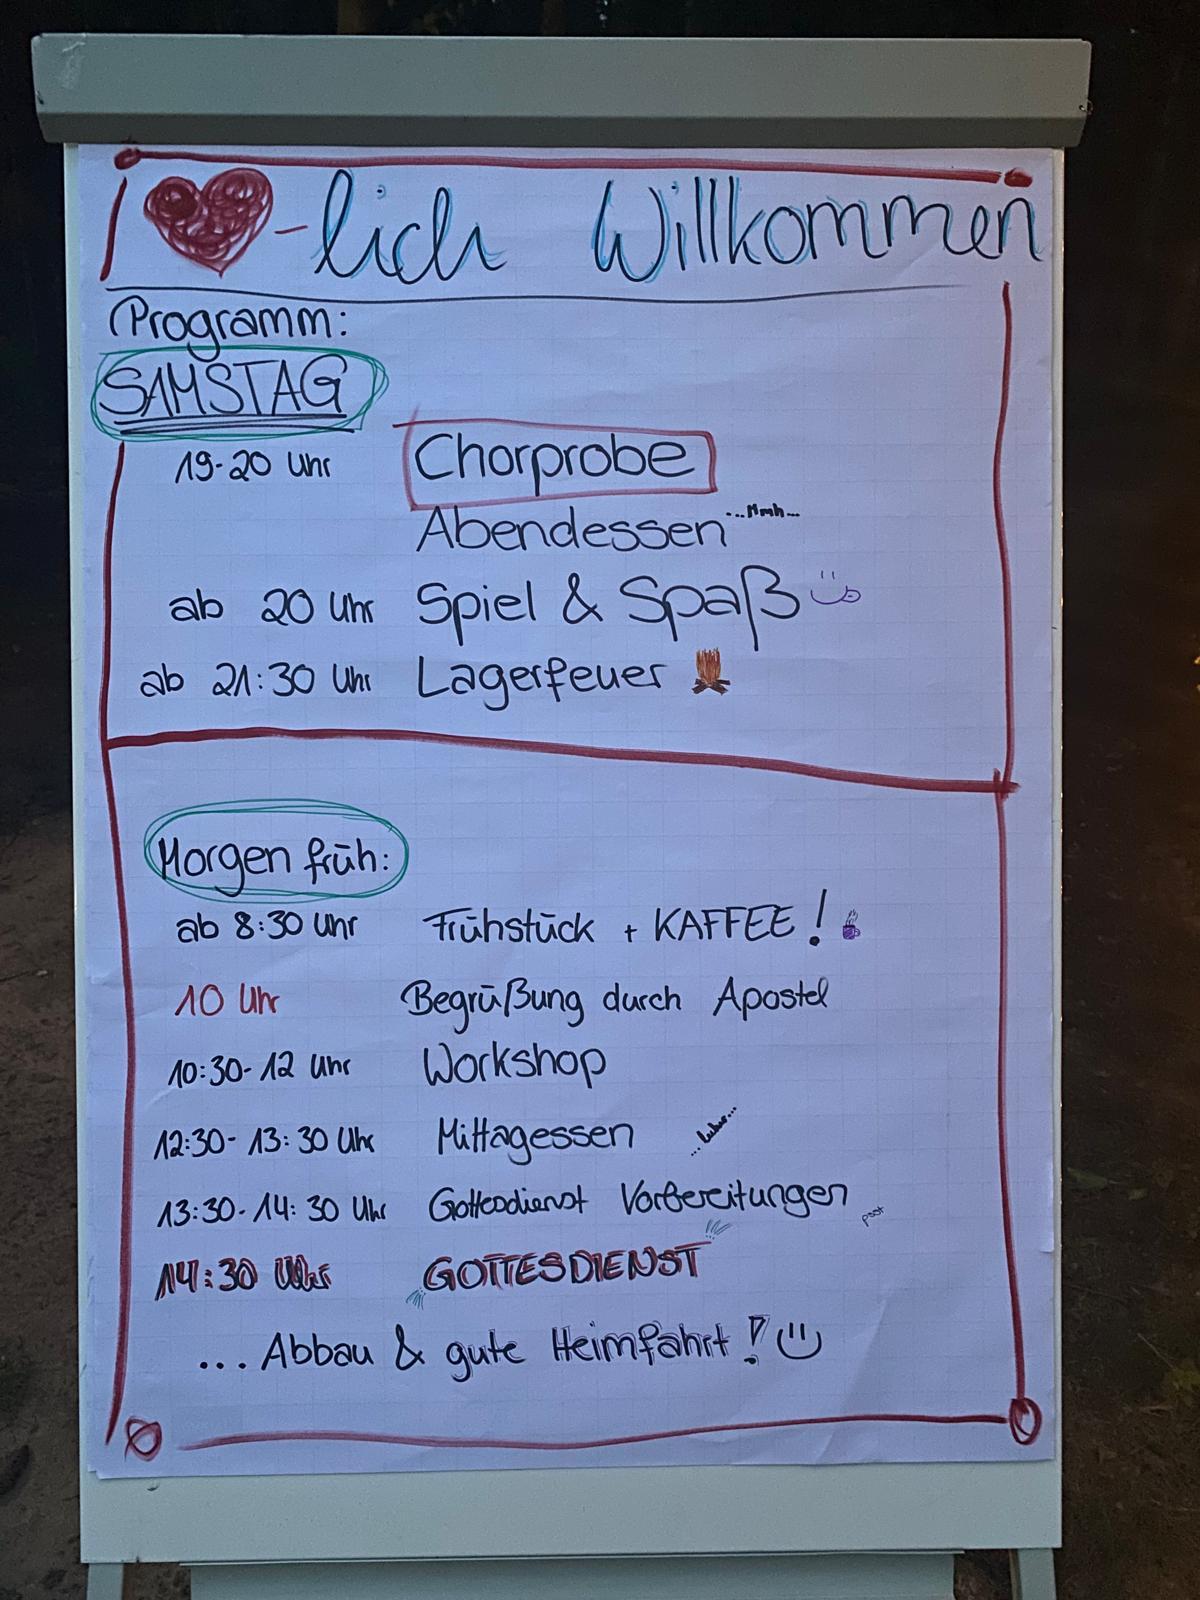 -lich Willkommen
Programm:
SAMSTAG
19-20 Uhr Chorprobe
Abendessen ...Mmh...
ab 20 Uhr Spiel & Spaß
ab 21:30 Uhr Lagerfeuer
Morgen früh:
ab 8:30 Uhr Frühstück + KAFFEE!
10 Uhr Begrüßung durch Apostel
10:30-12 Uhr Workshop
12:30-13:30 Uhr Mittagessen
13:30-14:30 Uhr Gottesdienst Vorbereitungen
14:30 Uhr GOTTESDIENST
... Abbau & gute Heimfahrt!